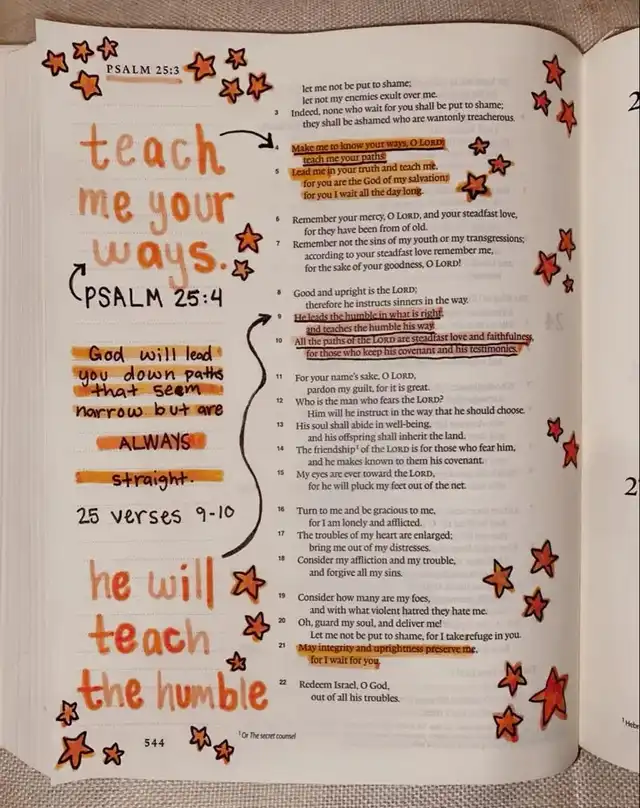 PSALM 25:3
teach
me your
ways.
PSALM 25:4
God will lead
you down paths
that seem
narrow but are
ALWAYS
straight.
25 verses 9-10
he will
teach
the humble
let me not be put to shame;
let not my enemies exult over me.
3 Indeed, none who wait for you shall be put to shame;
they shall be ashamed who are wantonly treacherous.
4 Make me to know your ways, O LORD;
teach me your paths.
5 Lead me in your truth and teach me,
for you are the God of my salvation;
for you I wait all the day long.
6 Remember your mercy, O LORD, and your steadfast love,
for they have been from of old.
7 Remember not the sins of my youth or my transgressions;
according to your steadfast love remember me,
for the sake of your goodness, O LORD!
8 Good and upright is the LORD;
therefore he instructs sinners in the way.
9 He leads the humble in what is right,
and teaches the humble his way.
10 All the paths of the LORD are steadfast love and faithfulness,
for those who keep his covenant and his testimonies.
11 For your name's sake, O LORD,
pardon my guilt, for it is great.
12 Who is the man who fears the LORD?
Him will he instruct in the way that he should choose.
13 His soul shall abide in well-being,
and his offspring shall inherit the land.
14 The friendship¹ of the LORD is for those who fear him,
and he makes known to them his covenant.
15 My eyes are ever toward the LORD,
for he will pluck my feet out of the net.
16 Turn to me and be gracious to me,
for I am lonely and afflicted.
17 The troubles of my heart are enlarged;
bring me out of my distresses.
18 Consider my affliction and my trouble,
and forgive all my sins.
19 Consider how many are my foes,
and with what violent hatred they hate me.
20 Oh, guard my soul, and deliver me!
Let me not be put to shame, for I take refuge in you.
21 May integrity and uprightness preserve me,
for I wait for you.
22 Redeem Israel, O God,
out of all his troubles.
544
¹ Or The secret counsel
2
2
¹ Hebr